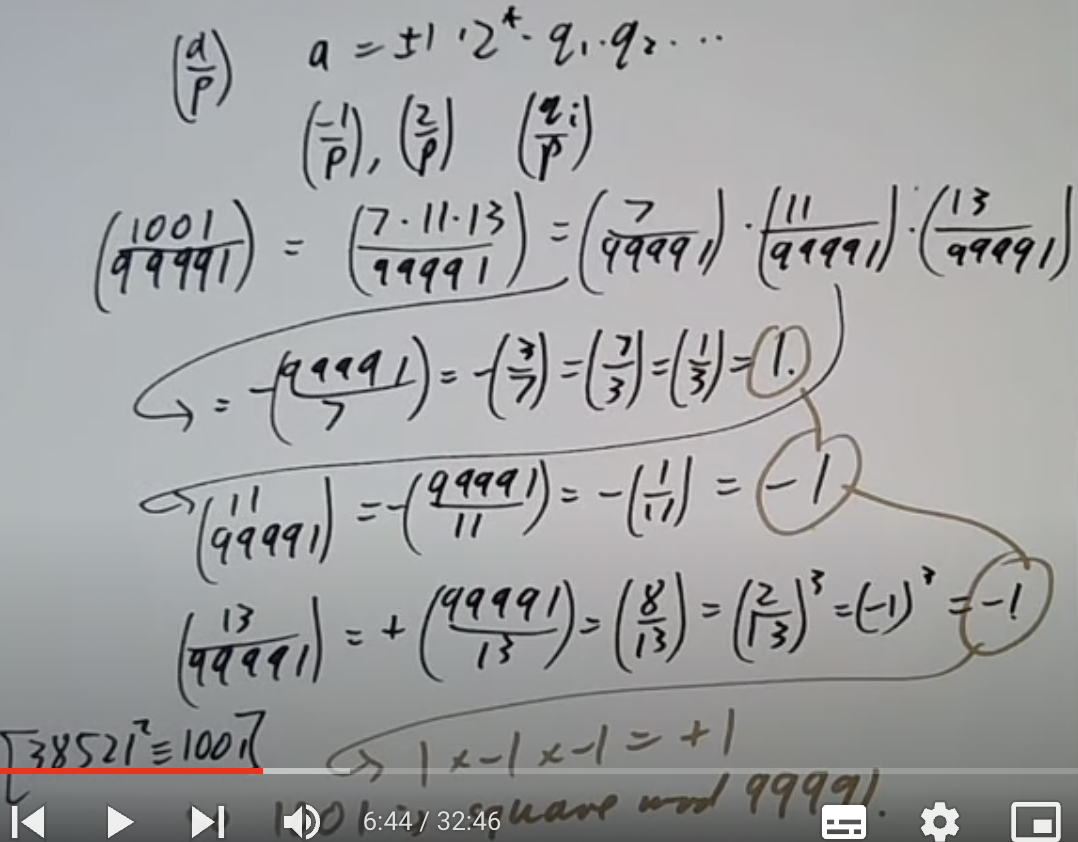 (a/p) a = ±1 · 2^k · q₁ · q₂ · · ·
(-1/p), (2/p) (qᵢ/p)
(1001/99991) = (7 · 11 · 13/99991) = (7/99991) · (11/99991) · (13/99991)
= -(99991/7) = -(3/7) = (7/3) = (1/3) = 1.
(11/99991) = -(99991/11) = -(1/11) = -1
(13/99991) = + (99991/13) = (8/13) = (2/13)³ = (-1)³ = -1
[38521² ≡ 1001]
1 × -1 × -1 = +1
1001 is square mod 99991.
6:44 / 32:46